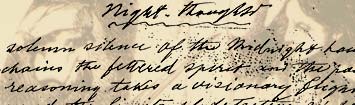 Night-Thoughts
solemn silence of the Midnight hou
chains the fettered spirit and the pa
reasoning takes a visionary flight